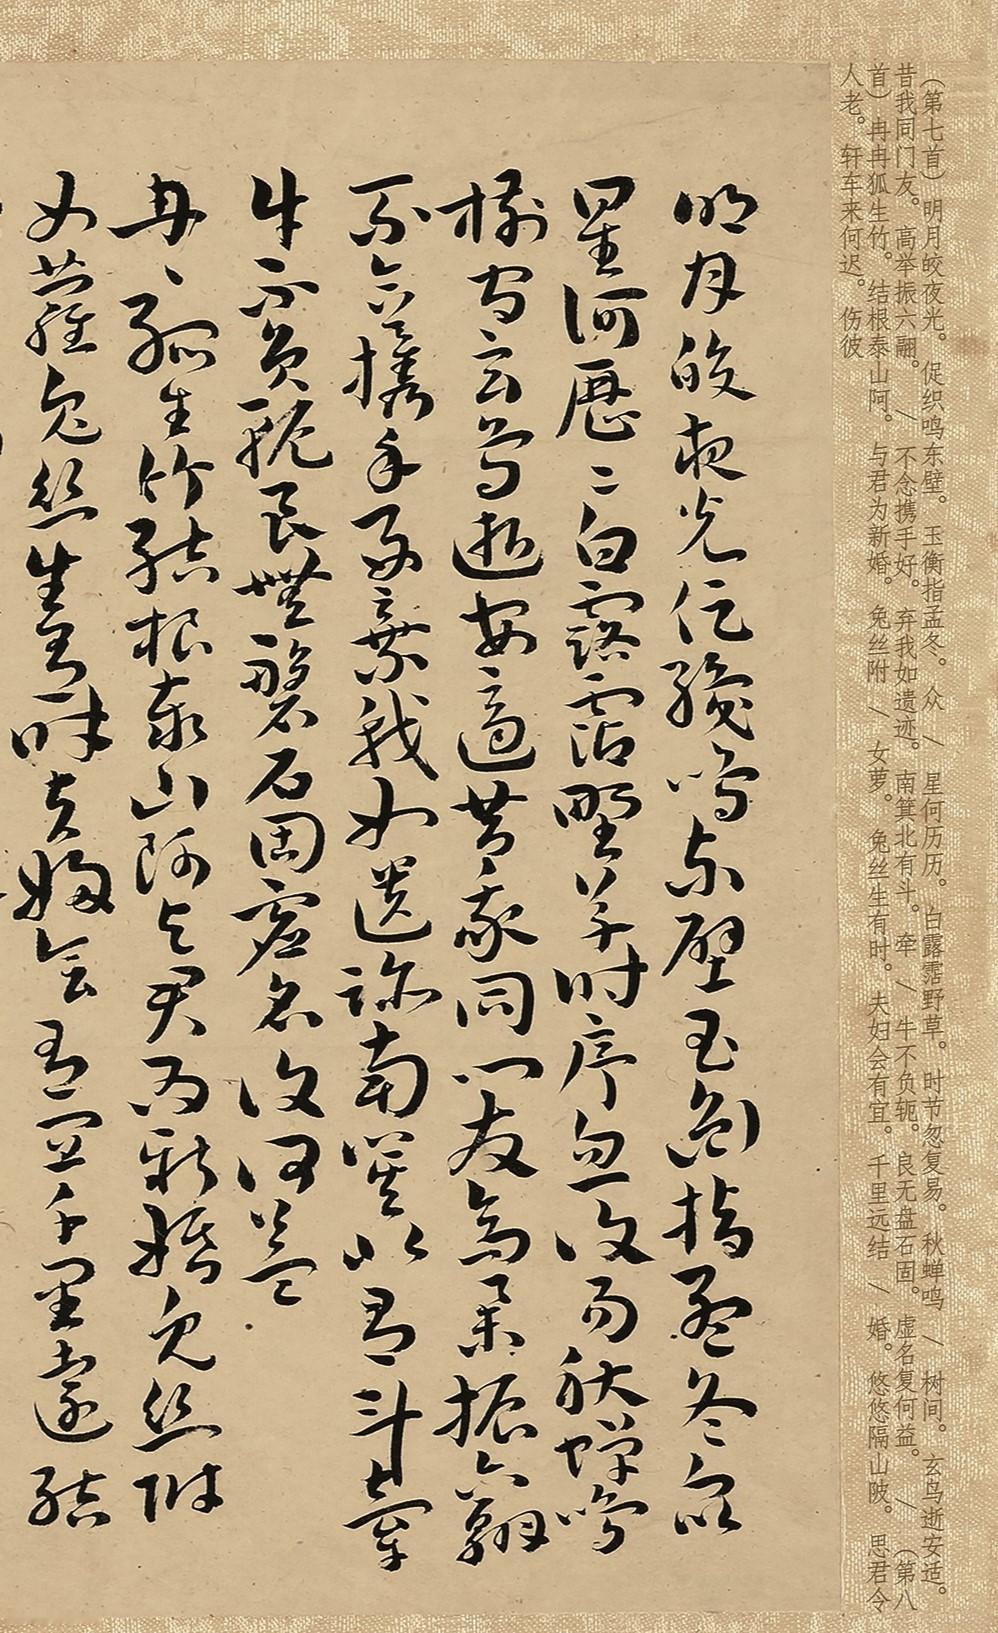 （第七首）明月皎夜光。促织鸣东壁。玉衡指孟冬。众 / 星何历历。白露霑野草。时节忽复易。秋蝉鸣 / 树间。玄鸟逝安适。
昔我同门友。高举振六翮。 / 不念携手好。弃我如遗迹。南箕北有斗。牵 / 牛不负轭。良无盘石固。虚名复何益。 / （第八
首）冉冉狐生竹。结根泰山阿。与君为新婚。兔丝附 / 女萝。兔丝生有时。夫妇会有宜。千里远结 / 婚。悠悠隔山陂。思君令
人老。轩车来何迟。伤彼
明月皎夜光促織鳴東壁玉衡指孟冬眾
星何歷〻白露霑野草時節忽復易秋蟬鳴
樹間玄鳥逝安適昔我同門友高舉振六翮
不念攜手好棄我如遺跡南箕北有斗牽
牛不負軛良無磐石固虛名復何益
冉〻孤生竹結根泰山阿与君為新婚兔絲附
女蘿兔絲生有時夫婦會有宜千里遠結